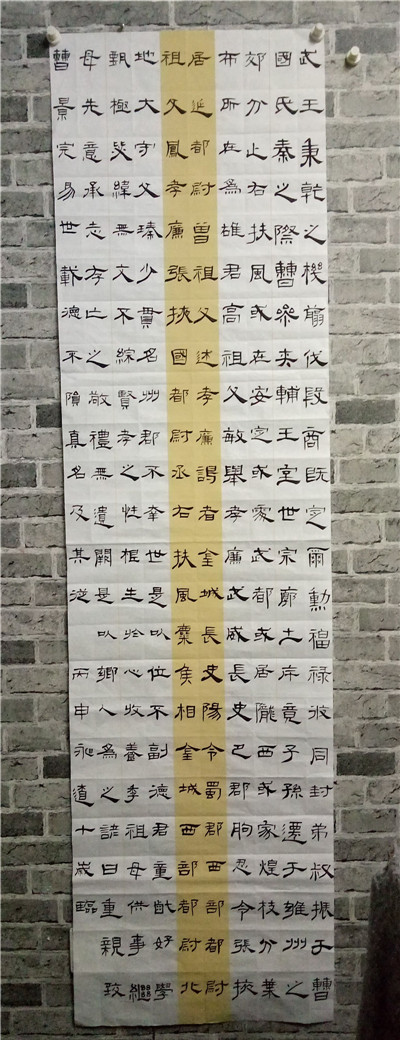 武王秉乾之機翦伐殷商既定爾勳福祿攸同封弟叔振于曹
國氏秦之際曹參夾輔王室世宗廓土斥竟子孫遷于雍州之
郊分止右扶風或在安定或處武都或居隴西或家煌枝分葉
布所在為雄君高祖父敏舉孝廉武威長史巴郡朐忍令張掖
居延都尉曾祖父述孝廉謁者金城長史陽令蜀郡西部都尉
祖父鳳孝廉張掖國都尉丞右扶風糜侯相金城西部都尉北
地大守父琫少貫名州郡不幸世是以位不副德君童齔好學
甄極毖緯無文不綜賢孝之性根生於心收養季祖母供事繼
母先意承志存亡之敬禮無遺闕是以鄉人為之諺曰重親致
曹景完易世載德不隕其名及其從丙申永道十歲臨